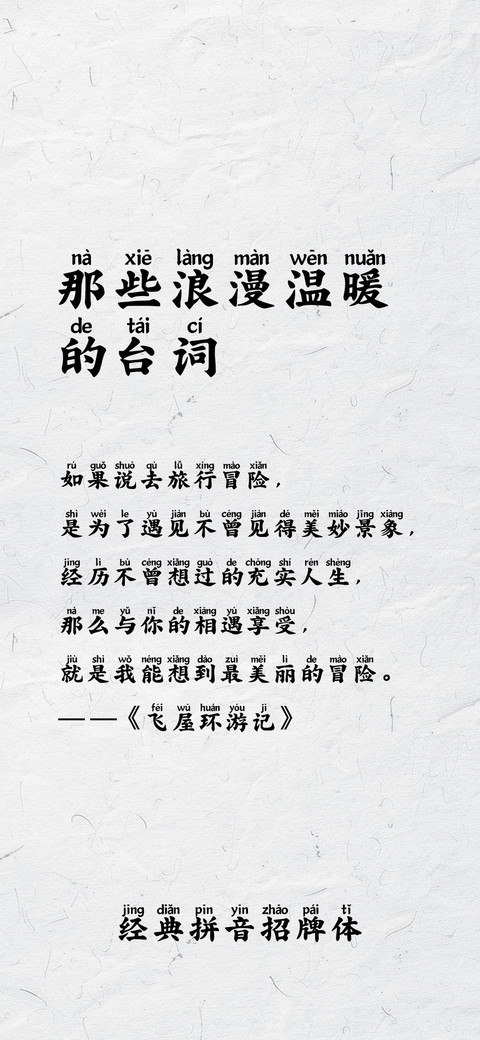 nà xiē làng màn wēn nuǎn
那些浪漫温暖
de tái cí
的台词
rú guǒ shuō qù lǚ xíng mào xiǎn
如果说去旅行冒险，
shì wèi le yù jiàn bù céng jiàn dé měi miào jǐng xiàng
是为了遇见不曾见得美妙景象，
jīng lì bù céng xiǎng guò de chōng shí rén shēng
经历不曾想过的充实人生，
nà me yǔ nǐ de xiāng yù xiǎng shòu
那么与你的相遇享受，
jiù shì wǒ néng xiǎng dào zuì měi lì de mào xiǎn
就是我能想到最美丽的冒险。
fēi wū huán yóu jì
——《飞屋环游记》
jīng diǎn pīn yīn zhāo pái tǐ
经典拼音招牌体